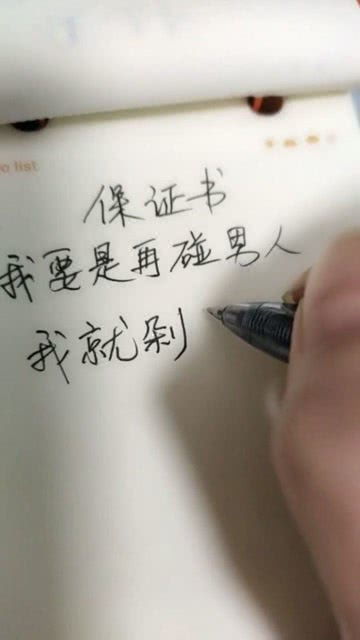 o list
保证书
我要是再碰男人
我就剁